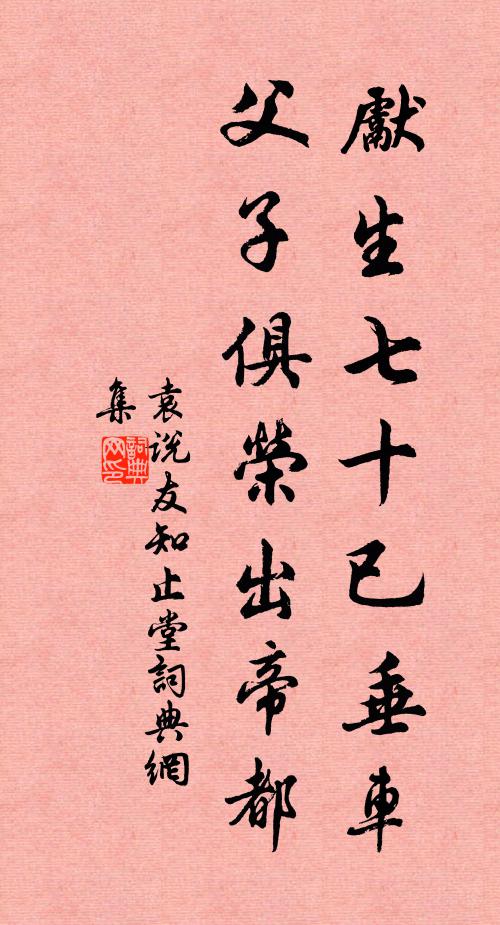 獻生七十已垂車
父子俱榮出帝都
袁說友知止堂詞典網
集
詞典网印